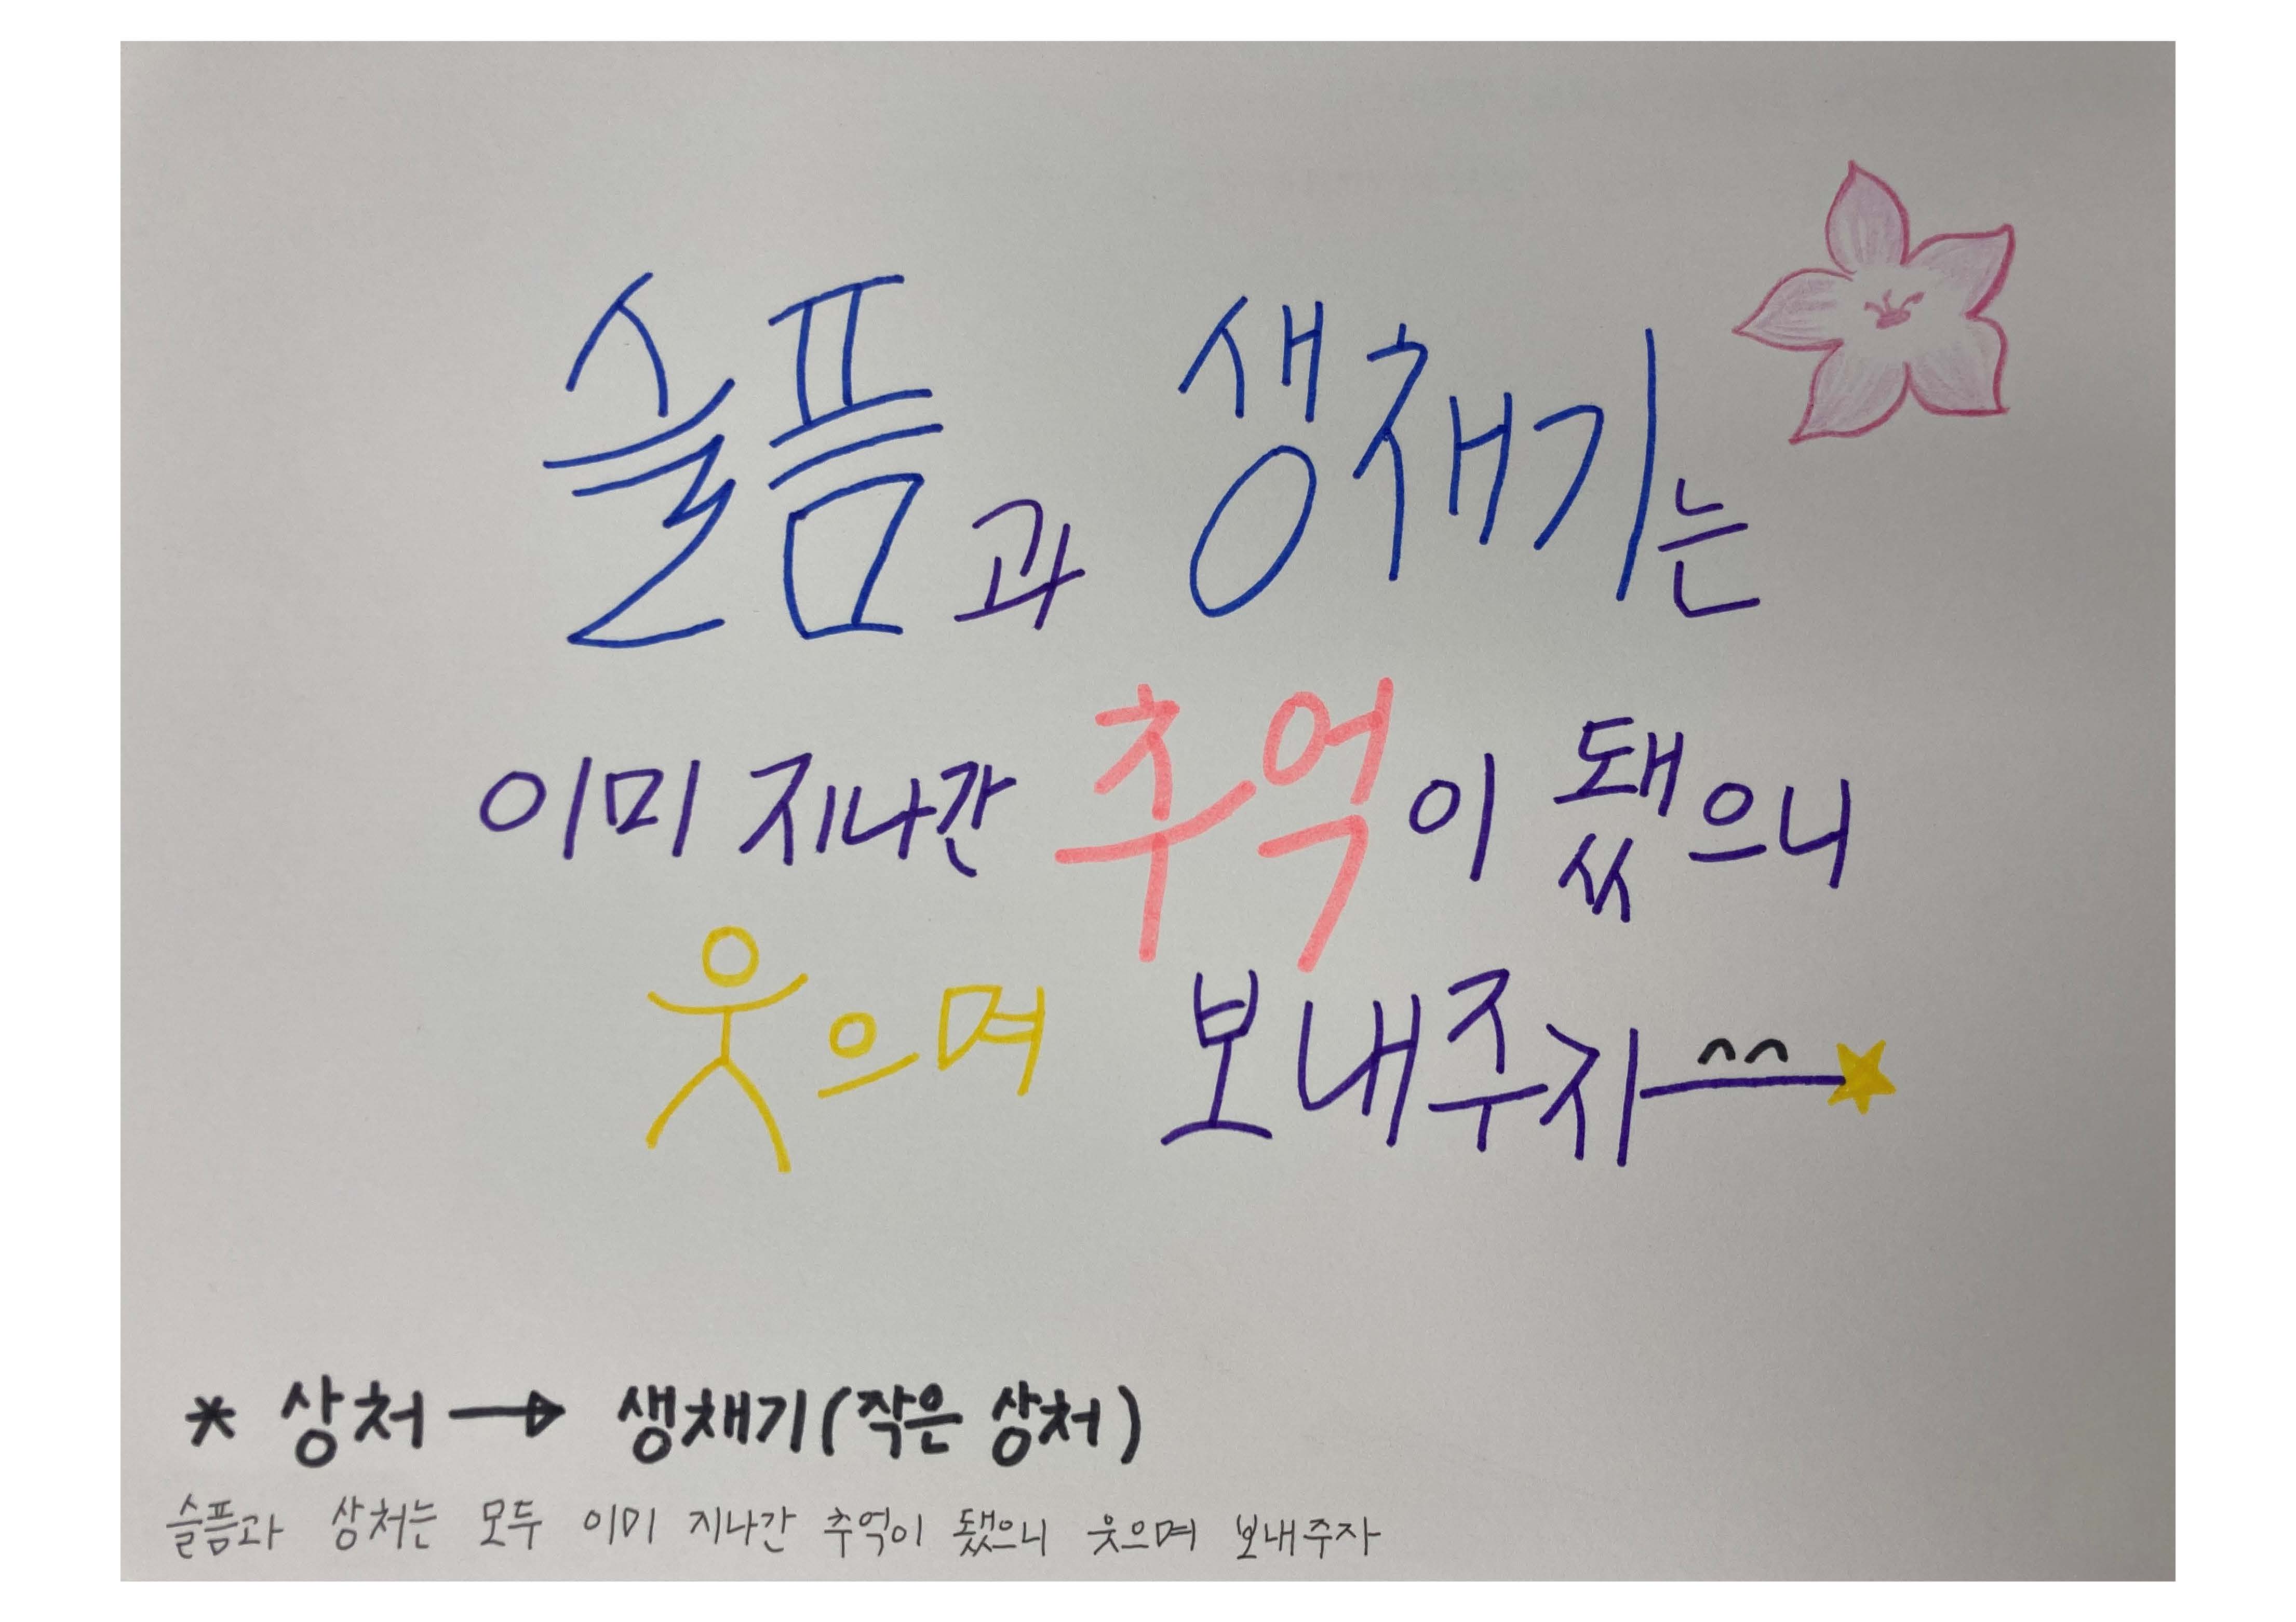 슬픔과 생채기는
이미 지나간 추억이 됐으니
웃으며 보내주자 ^^
* 상처 → 생채기(작은 상처)
슬픔과 상처는 모두 이미 지나간 추억이 됐으니 웃으며 보내주자